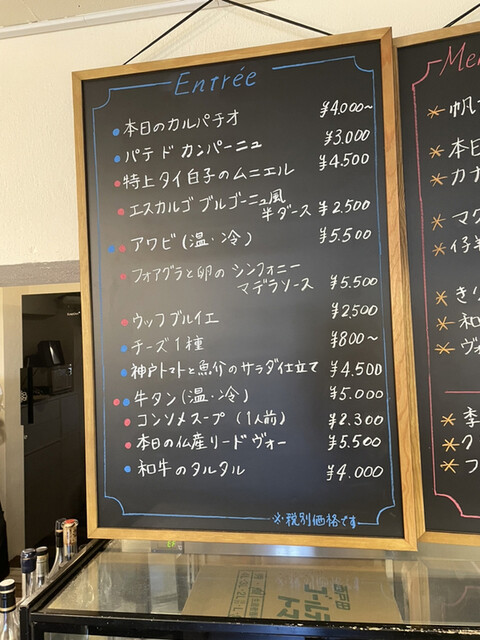 Entrée
本日のカルパチオ ¥4.000~
パテ ド カンパーニュ ¥3.000
特上 タイ 白子のムニエル ¥4500
エスカルゴ ブルゴーニュ風
半ダース ¥2.500
アワビ(温・冷) ¥5.500
フォアグラと卵の シンフォニー
マデラソース ¥5.500
ウッフブルイエ ¥2500
チーズ1種 ¥800~
神戸トマトと魚介のサラダ仕立て ¥4.500
牛タン(温・冷) ¥5.000
コンソメスープ (1人前) ¥2.300
本日の仏産リードヴォー ¥5.500
和牛のタルタル ¥4.000
※税別価格です
Me
帆
本日
カナ
マグ
仔羊
きり
和
ヴ
季
ク
フ